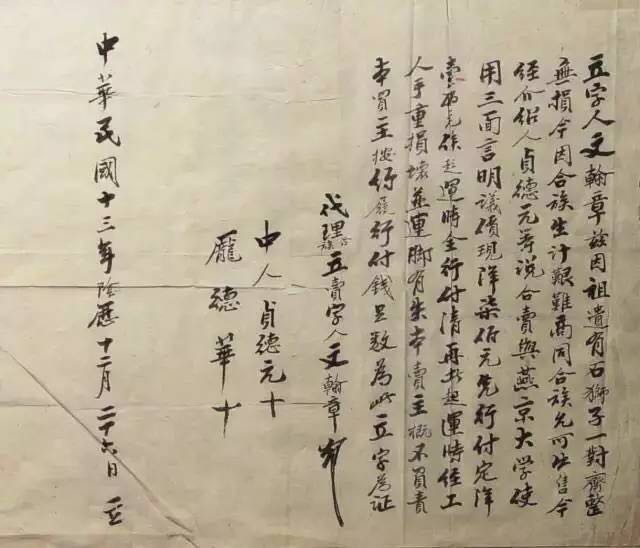 立字人文翰章茲因祖遺有石獅子一對齊整
無損今因合族生計艱難商同合族允可出售今
經介紹人貞德元等说合賣與燕京大学使
用三面言明議價現洋柒佰元先行付定洋
壹佰元俟起運時全行付清再於起運時經工
人手重損壞並運脚有失本賣主概不負責
本買主按行履行付錢足数為此立字為证
代理合族立賣字人文翰章
中人貞德元十
龐德華十
中華民國十三年陰歷十二月二十六日 立